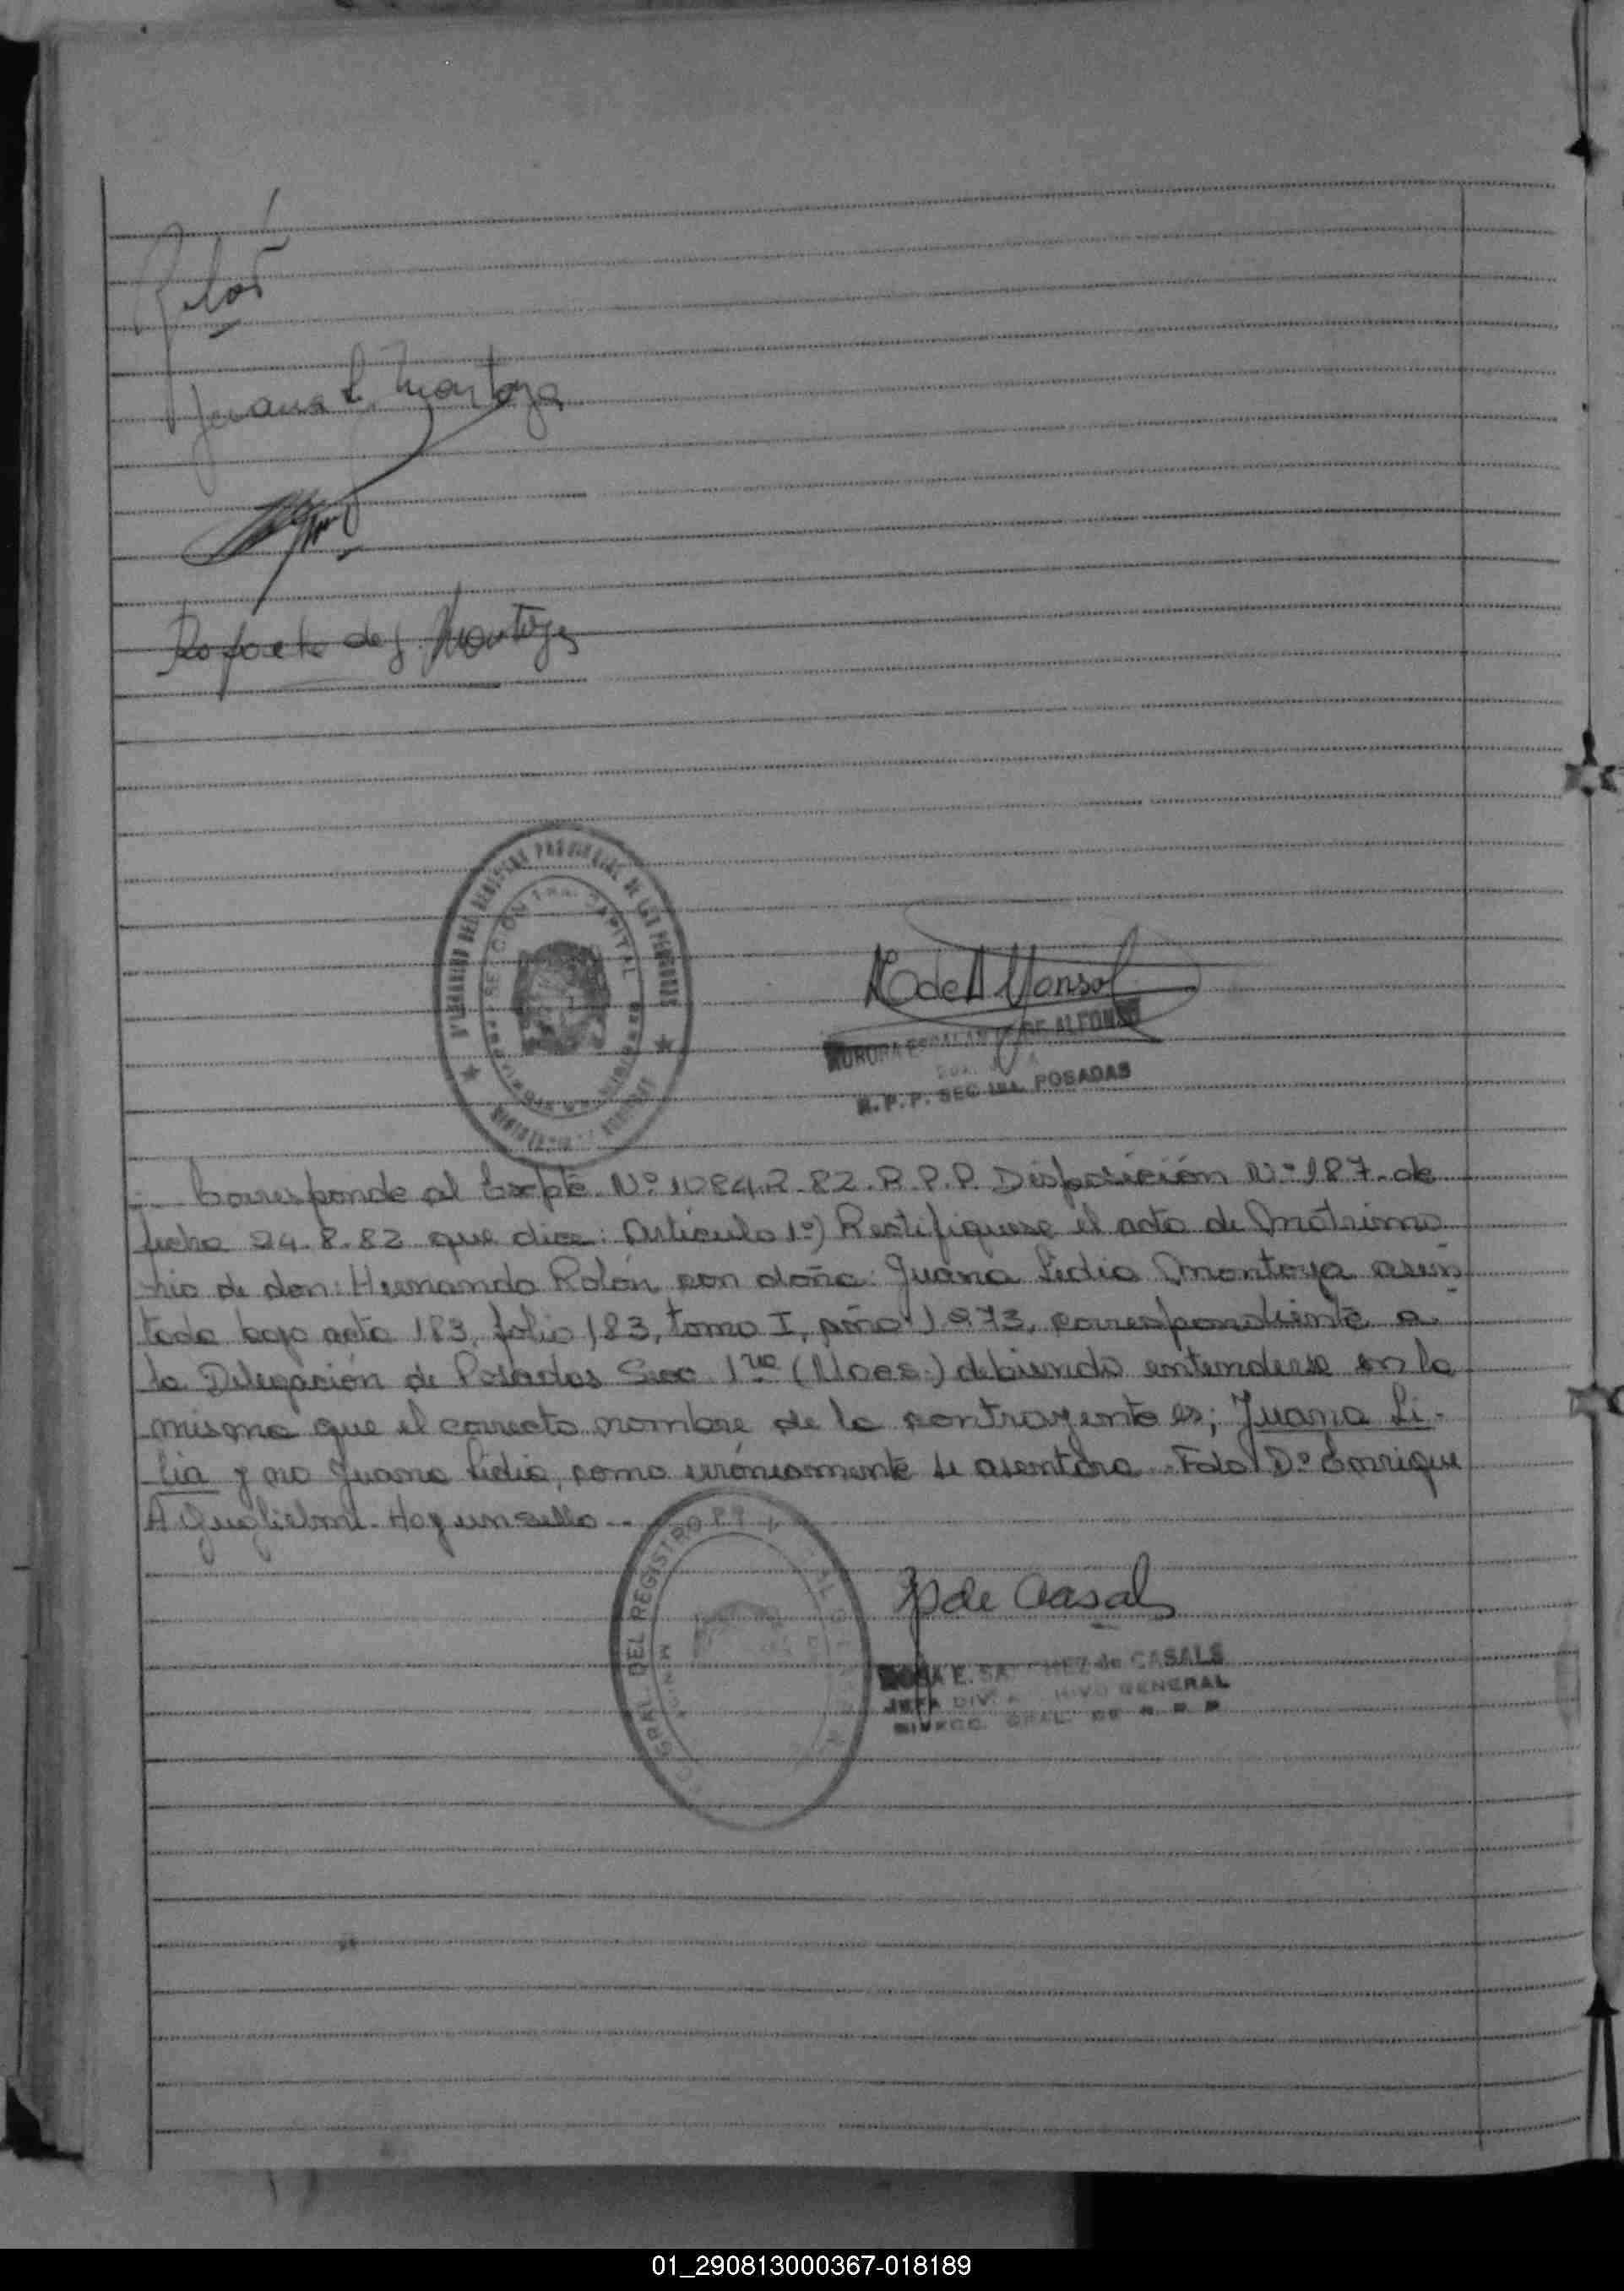 Rolón
Juana L. Montoya
de Montoya
SECCION 1RA. CAPITAL
AURORA ESCALANTE DE ALFONSO
R.P.P. SEC. 1RA. POSADAS
Corresponde al Expte Nº 1084.R-82.R.P.P. Disposición Nº 187.de
fecha 24.8.82 que dice: Artículo 1º) Rectifiquese el acta de Matrimo
nio de don: Hernando Rolón con doña: Juana Lidia Montoya asen
tada bajo acta 183, folio 183, tomo I, año 1973, correspondiente a
la Delegación de Posadas Secc 1ra (Mnes.) debiendo entenderse en la
misma que el correcto nombre de la contrayente es; Juana Li-
lia y no Juana Lidia, como erróneamente se asentara. Fdo Dº Enrique
A Guglielmi. Hay un sello..
GRAL DEL REGISTRO
de Casals
E. SANCHEZ de CASALS
JEFA DIV. ARCHIVO GENERAL
DIRECC. GRAL. DE R.P.P
01_290813000367-018189